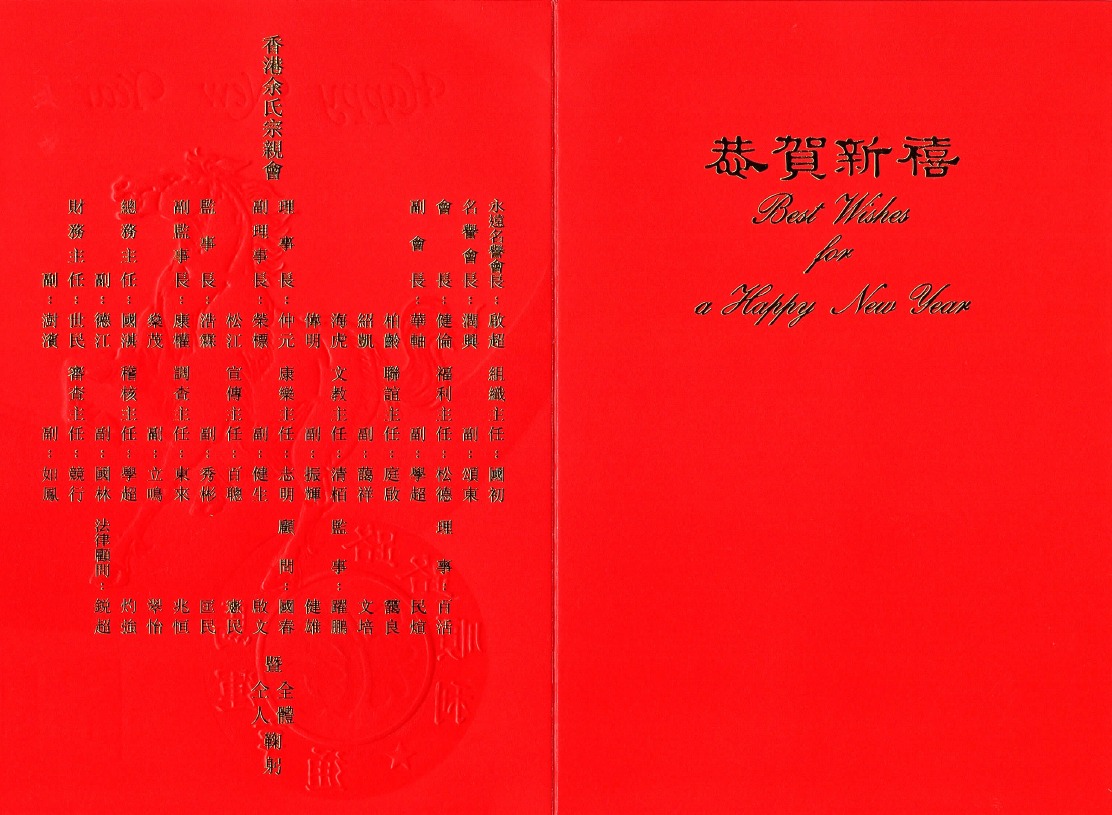 恭賀新禧
Best Wishes
for
a Happy New Year
香港余氏宗親會
永遠名譽會長：啟超
名譽會長：潤興
會長：健倫
副會長：華軸
柏齡
紹凱
海虎
偉明
理事長：仲元
副理事長：榮標
松江
監事長：浩霖
副監事長：康權
燊茂
總務主任：國湛
副：德江
財務主任：世民
副：澍濱
組織主任：國初
副：頌東
福利主任：松德
副：學超
聯誼主任：庭啟
副：藹祥
文教主任：清栢
副：振輝
康樂主任：志明
副：健生
宣傳主任：百聰
副：秀彬
調查主任：東來
副：立鳴
稽核主任：學超
副：國林
審查主任：競行
副：如鳳
理事：百活
民煊
靄良
文培
監事：躍鵬
健雄
顧問：國春
啟文
憲民
匡民
兆恒
翠怡
灼強
法律顧問：鋭超
暨全體仝人鞠躬
Happy New Year